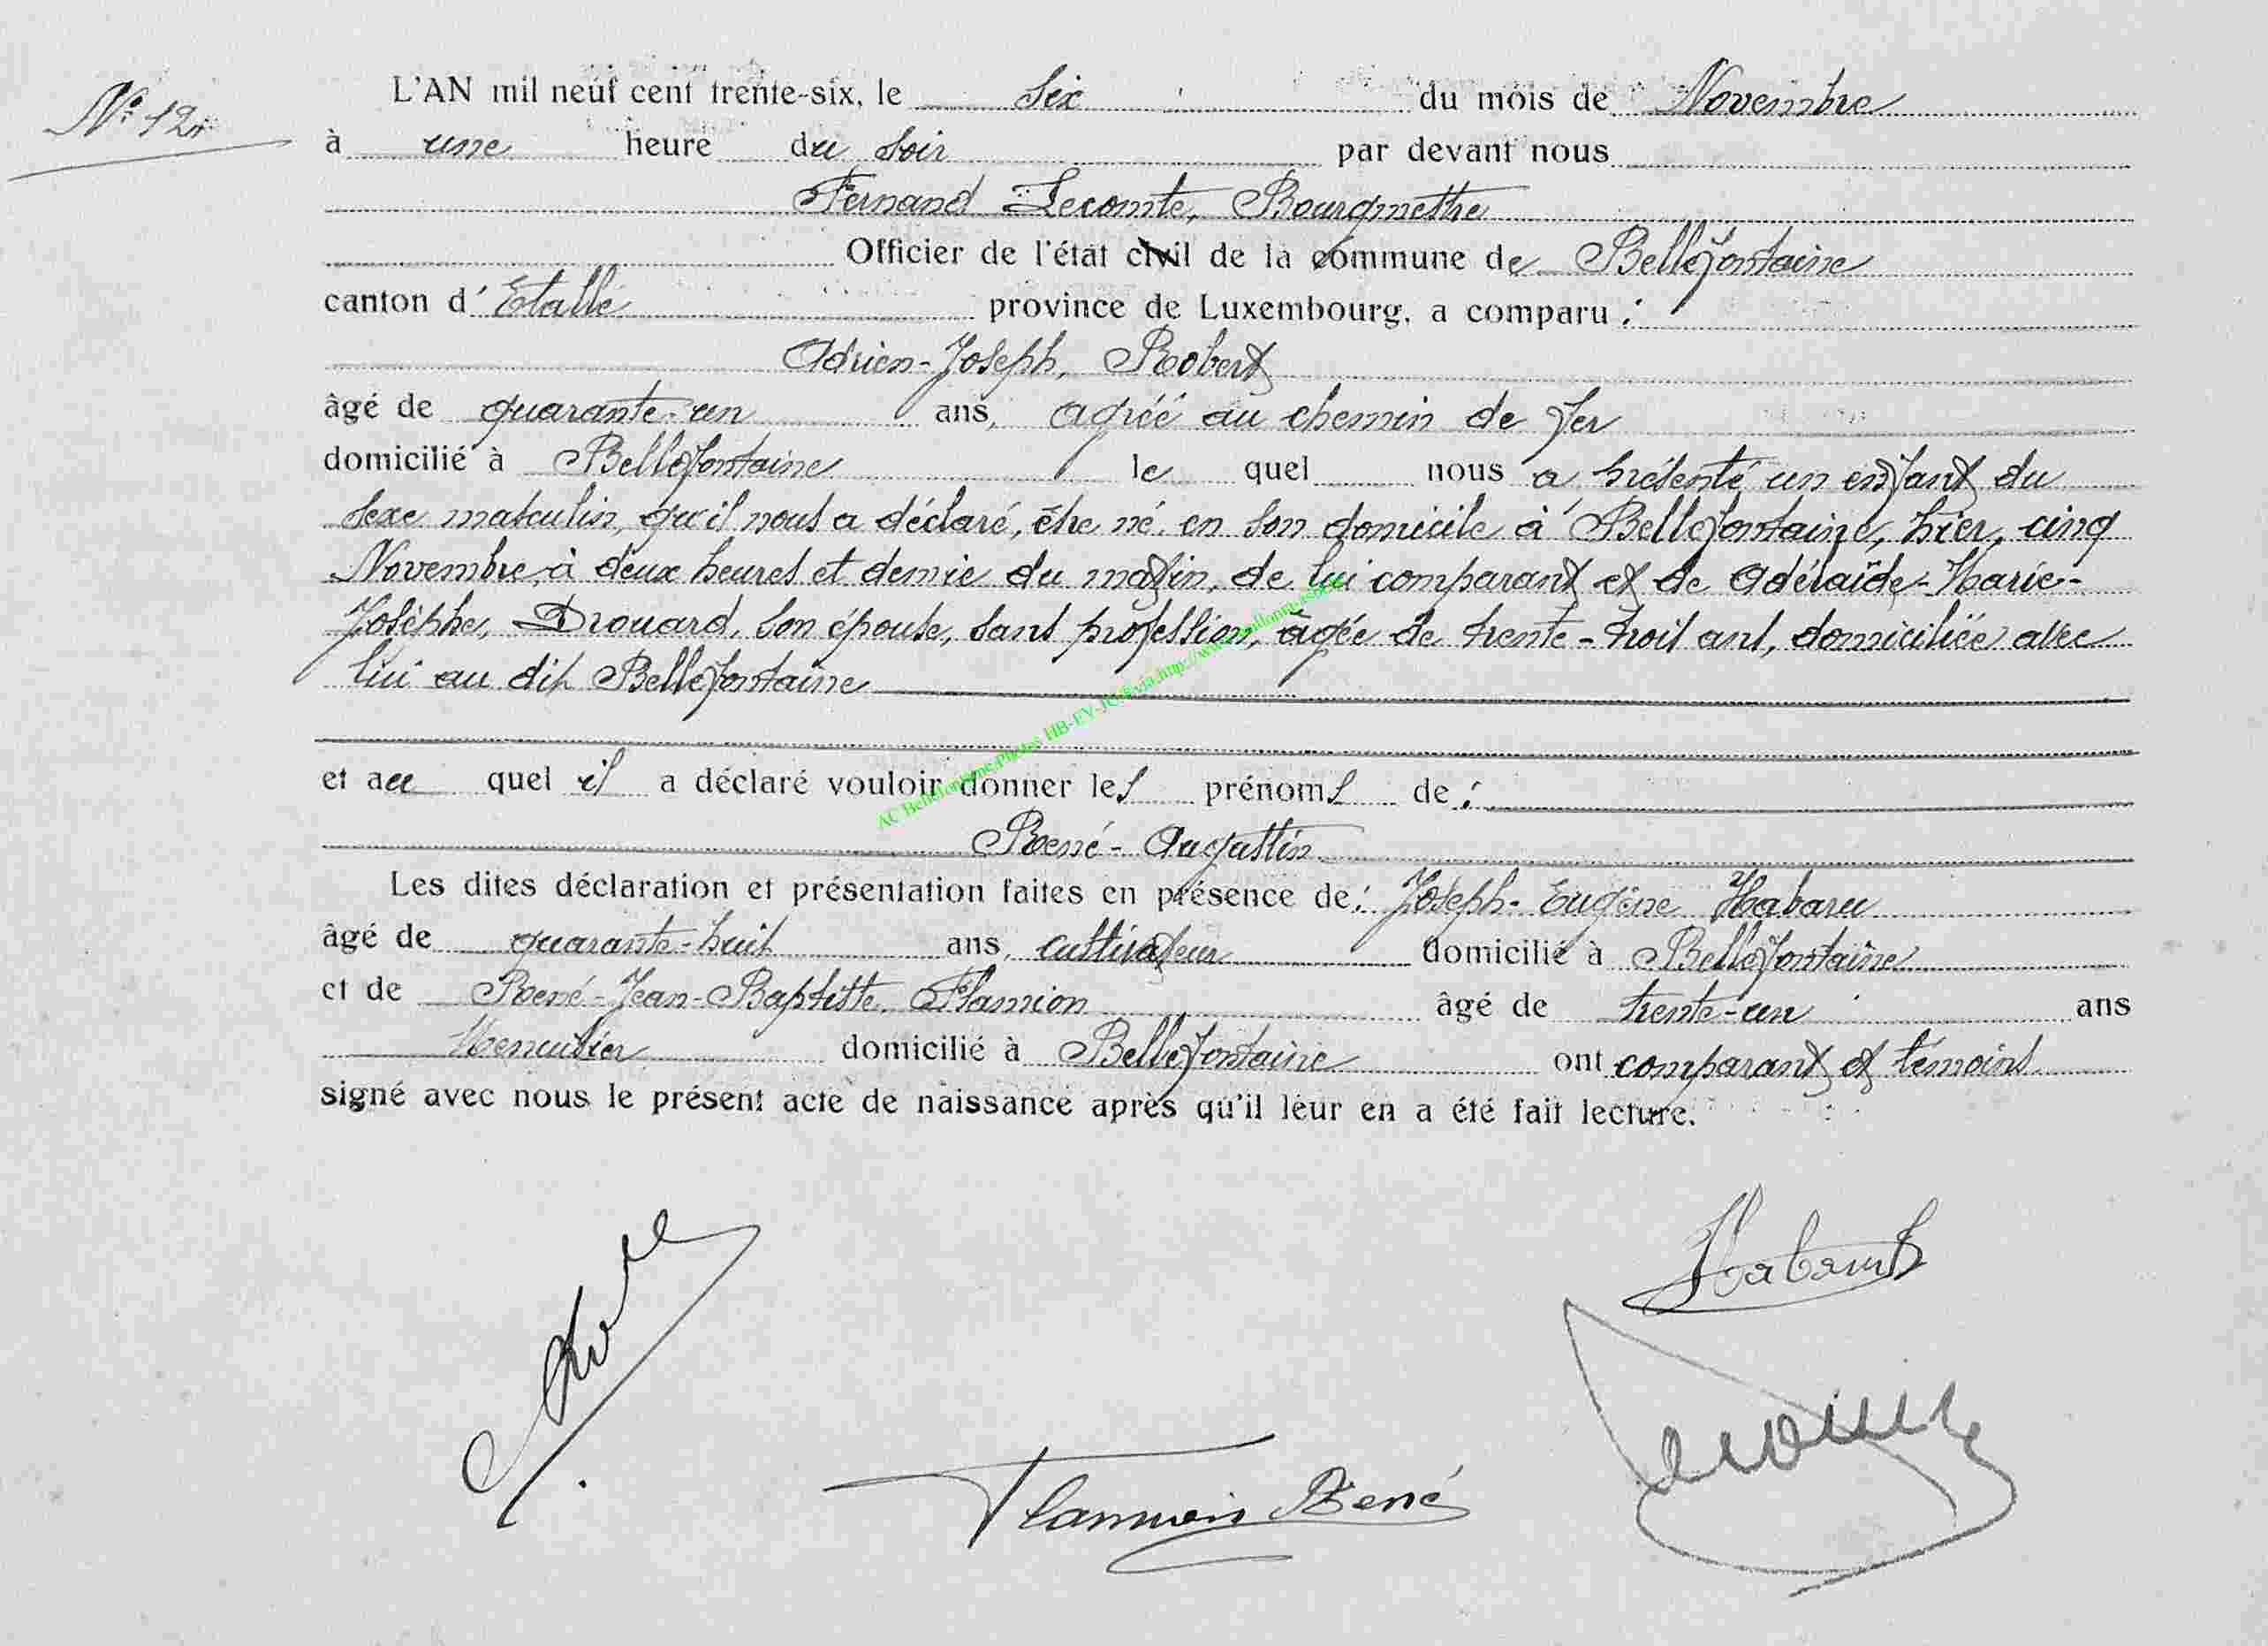 N° 12
L'AN mil neuf cent trente-six, le six du mois de Novembre
à une heure du soir par devant nous
Fernand Lecomte, Bourgmestre
Officier de l'état civil de la commune de Bellefontaine
canton d'Etalle province de Luxembourg, a comparu :
Adrien-Joseph, Robert
âgé de quarante-un ans, agréé au chemin de fer
domicilié à Bellefontaine le quel nous a présenté un enfant du
sexe masculin, qu'il nous a déclaré, être né, en son domicile à Bellefontaine, hier, cinq
Novembre, à deux heures et demie du matin, de lui comparant et de Adélaïde-Marie-
Josèphe, Drouard, son épouse, sans profession, âgée de trente-trois ans, domiciliée avec
lui au dit Bellefontaine
et au quel il a déclaré vouloir donner les prénoms de :
René-Augustin
Les dites déclaration et présentation faites en présence de : Joseph-Eugène Habaru
âgé de quarante-huit ans, cultivateur domicilié à Bellefontaine
et de René-Jean-Baptiste, Flamion âgé de trente-un ans
Menuisier domicilié à Bellefontaine ont comparant et témoins
signé avec nous le présent acte de naissance après qu'il leur en a été fait lecture.
Flamion René